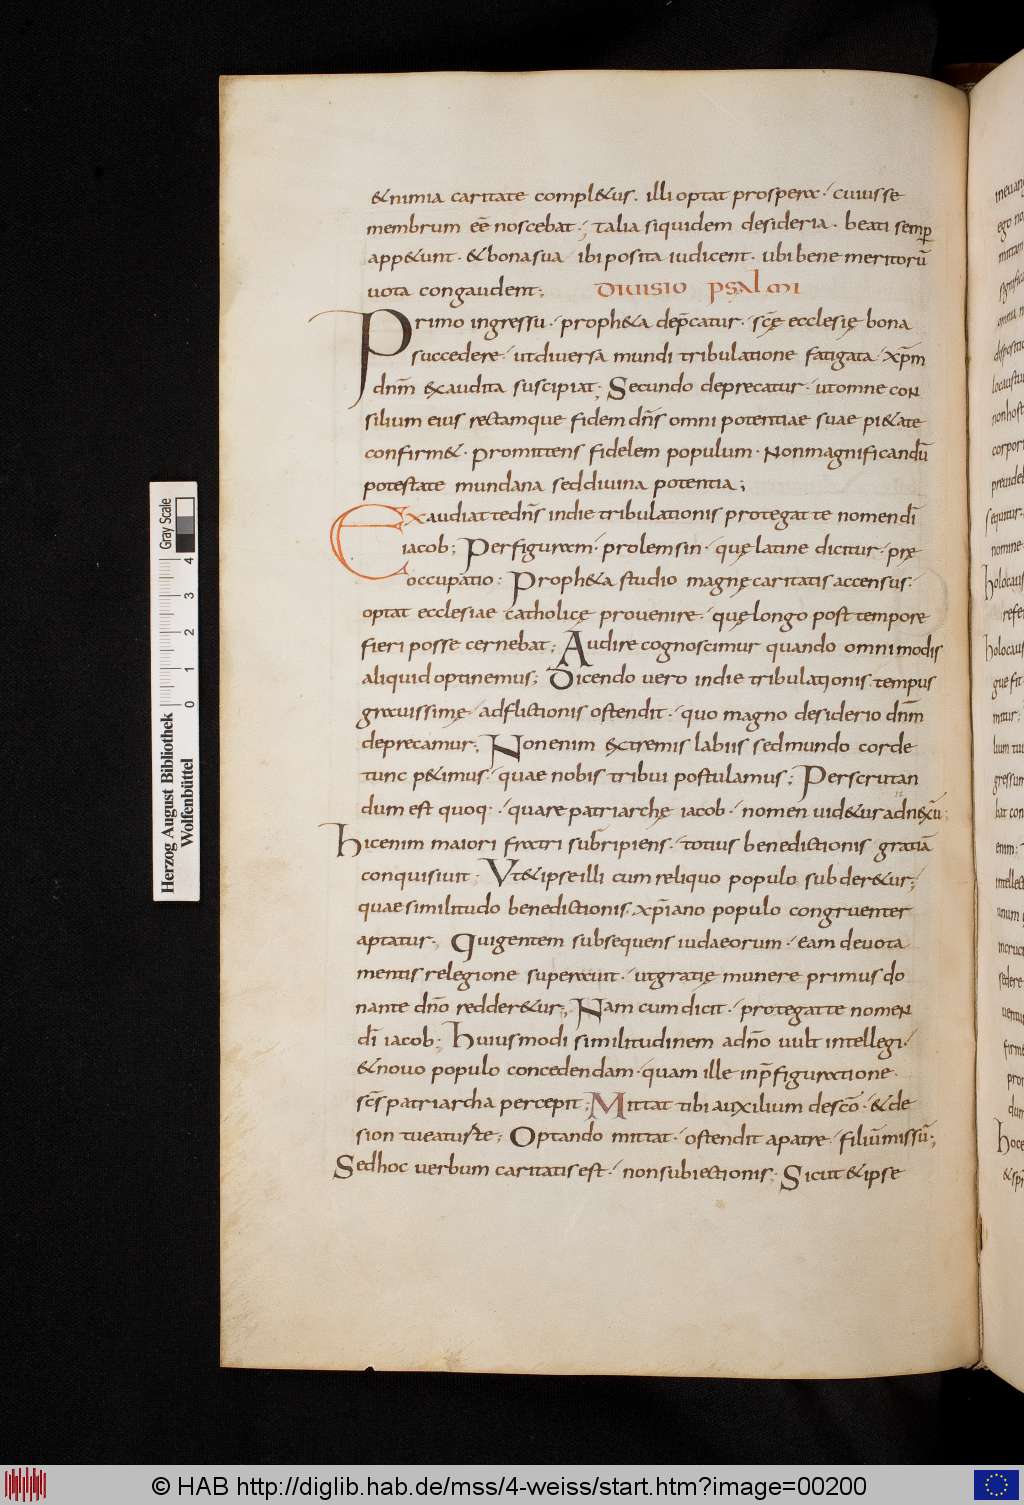 &nimia caritate compl&us. illi optat prospera. cuius se
membrum eē noscebat; talia siquidem desideria. beati semp̄
app&unt. &bona sua ibi posita iudicent. ubi bene meritorū
uota congaudent;
DIUISIO PSALMI
Primo ingressu. proph&a dep̄catur. scę ecclesię bona
succedere. ut diuersa mundi tribulatione fatigata. xp̄m
dn̄m exaudita suscipiat; Secundo deprecatur. ut omne con
silium eius rectamque fidem dn̄s omni potentiae suae pi&ate
confirm&. promittens fidelem populum. Non magnificandū
potestate mundana sed diuina potentia;
Exaudiat te dn̄s in die tribulationis protegat te nomen dī
iacob; Per figuram. prolemsin. quę latine dicitur. prę
occupatio; Proph&a studio magnę caritatis accensus.
optat ecclesiae catholicę prouenire. quę longo post tempore
fieri posse cernebat; Audire cognoscimur quando omnimodis
aliquid optinemus; Dicendo uero in die tribulationis tempus
grauissimę adflictionis ostendit. quo magno desiderio dn̄m
deprecamur; Non enim extremis labiis sed mundo corde
tunc p&imus. quae nobis tribui postulamus; Perscrutan
dum est quoq:. quare patriarchę iacob. nomen uid&ur adnexū;
hic enim maiori fratri subripiens. totius benedictionis gratiā
conquisiuit; Ut&ipse illi cum reliquo populo subder&ur;
quae similitudo benedictionis xp̄iano populo congruenter
aptatur; Qui gentem subsequens iudaeorum. eam deuota
mentis relegione superauit. ut gratię munere primus do
nante dn̄o redder&ur; Nam cum dicit. protegat te nomen
dī iacob; huiusmodi similitudinem ad n̄o uult intellegi.
&nouo populo concedendam. quam ille inp̄figuratione.
scs̄ patriarcha percepit; Mittat tibi auxilium de scō. &de
sion tueatur te; Optando mittat. ostendit a patre. filiū missū;
Sed hoc uerbum caritatis est. non subiectionis; Sicut &ipse
Herzog August Bibliothek
Wolfenbüttel
0 1 2 3 4
Gray Scale
© HAB http://diglib.hab.de/mss/4-weiss/start.htm?image=00200